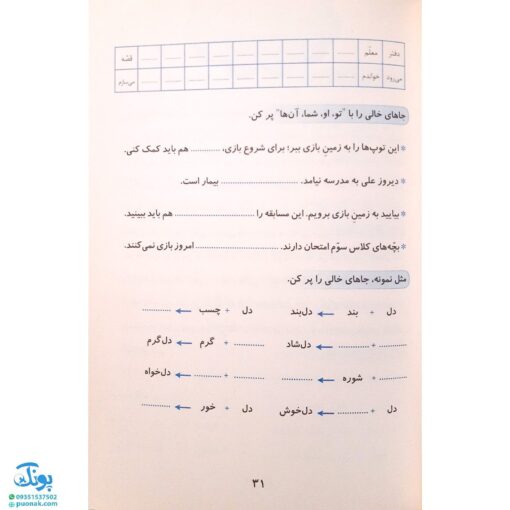 دفتر معلّم ........ ........ ........ ........ ........ ........ ........ ........ قصّه
می‌رود خواندم ........ ........ ........ ........ ........ ........ ........ ........ می‌سازم
جاهای خالی را با "تو، او، شما، آن‌ها" پر کن.
* این توپ‌ها را به زمین بازی ببر؛ برای شروع بازی، ............ هم باید کمک کنی.
* دیروز علی به مدرسه نیامد. ............ بیمار است.
* بیایید به زمین بازی برویم. این مسابقه را ............ هم باید ببینید.
* بچّه‌های کلاس سوّم امتحان دارند. ............ امروز بازی نمی‌کنند.
مثل نمونه، جاهای خالی را پر کن.
دل + بند ← دل‌بند دل + چسب ← ............
............ + ............ ← دل‌شاد ............ + گرم ← دل‌گرم
............ + شوره ← ............ ............ + ............ ← دل‌خواه
دل + ............ ← دل‌خوش دل + خور ← ............
۳۱
پونک
09351537502
puonak.com